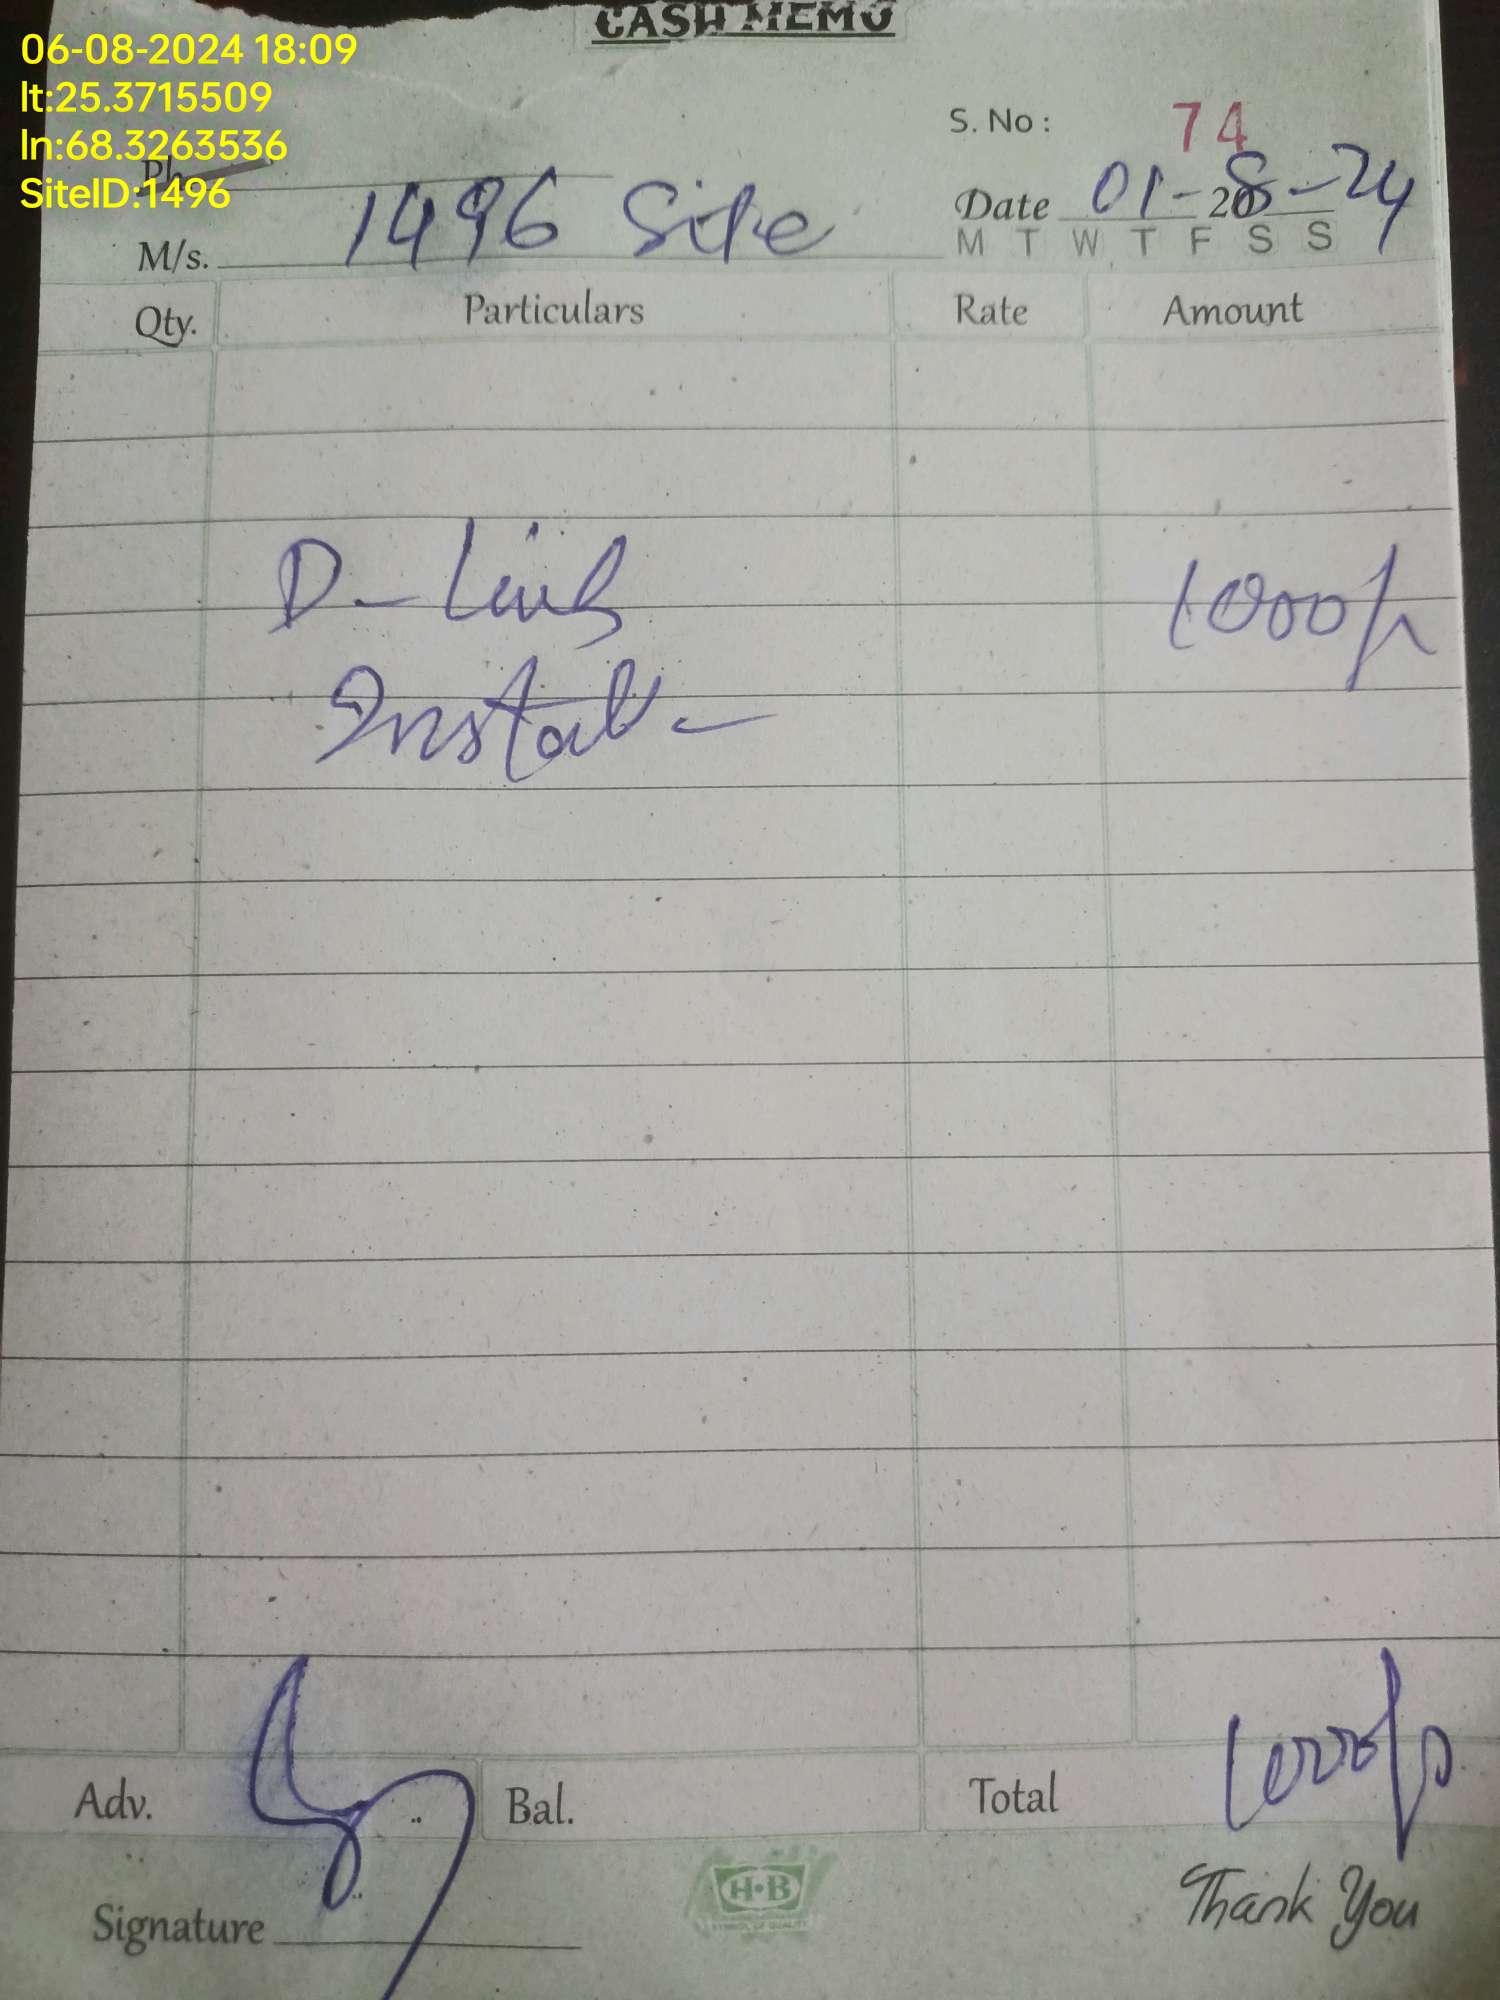 CASH MEMO
06-08-2024 18:09
lt:25.3715509
ln:68.3263536
SiteID:1496
S. No : 74
Ph
Date 01-8-24 20
M/s. 1496 Site
M T W T F S S
Qty. Particulars Rate Amount
D-Link 1000/-
Install-
Adv. Bal. Total 1000/-
H·B
SYMBOL OF QUALITY
Signature
Thank You